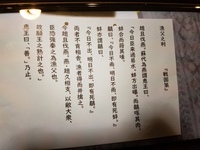 漁父之利 『戦国策』
趙且伐燕。蘇代為燕謂恵王曰、
「今日臣来過易水。蚌方出曝。而鷸啄其肉。
蚌合而箝其喙。
鷸曰、『今日不雨、明日不雨、即有死蚌。』
蚌亦謂鷸曰、
『今日不出、明日不出、即有死鷸。』
両者不肯相舎。漁者得而并擒之。
今趙且伐燕。燕趙久相支、以敝大衆、
臣恐強秦之為漁父也。
故願王之熟計之也。」
恵王曰、「善。」乃止。